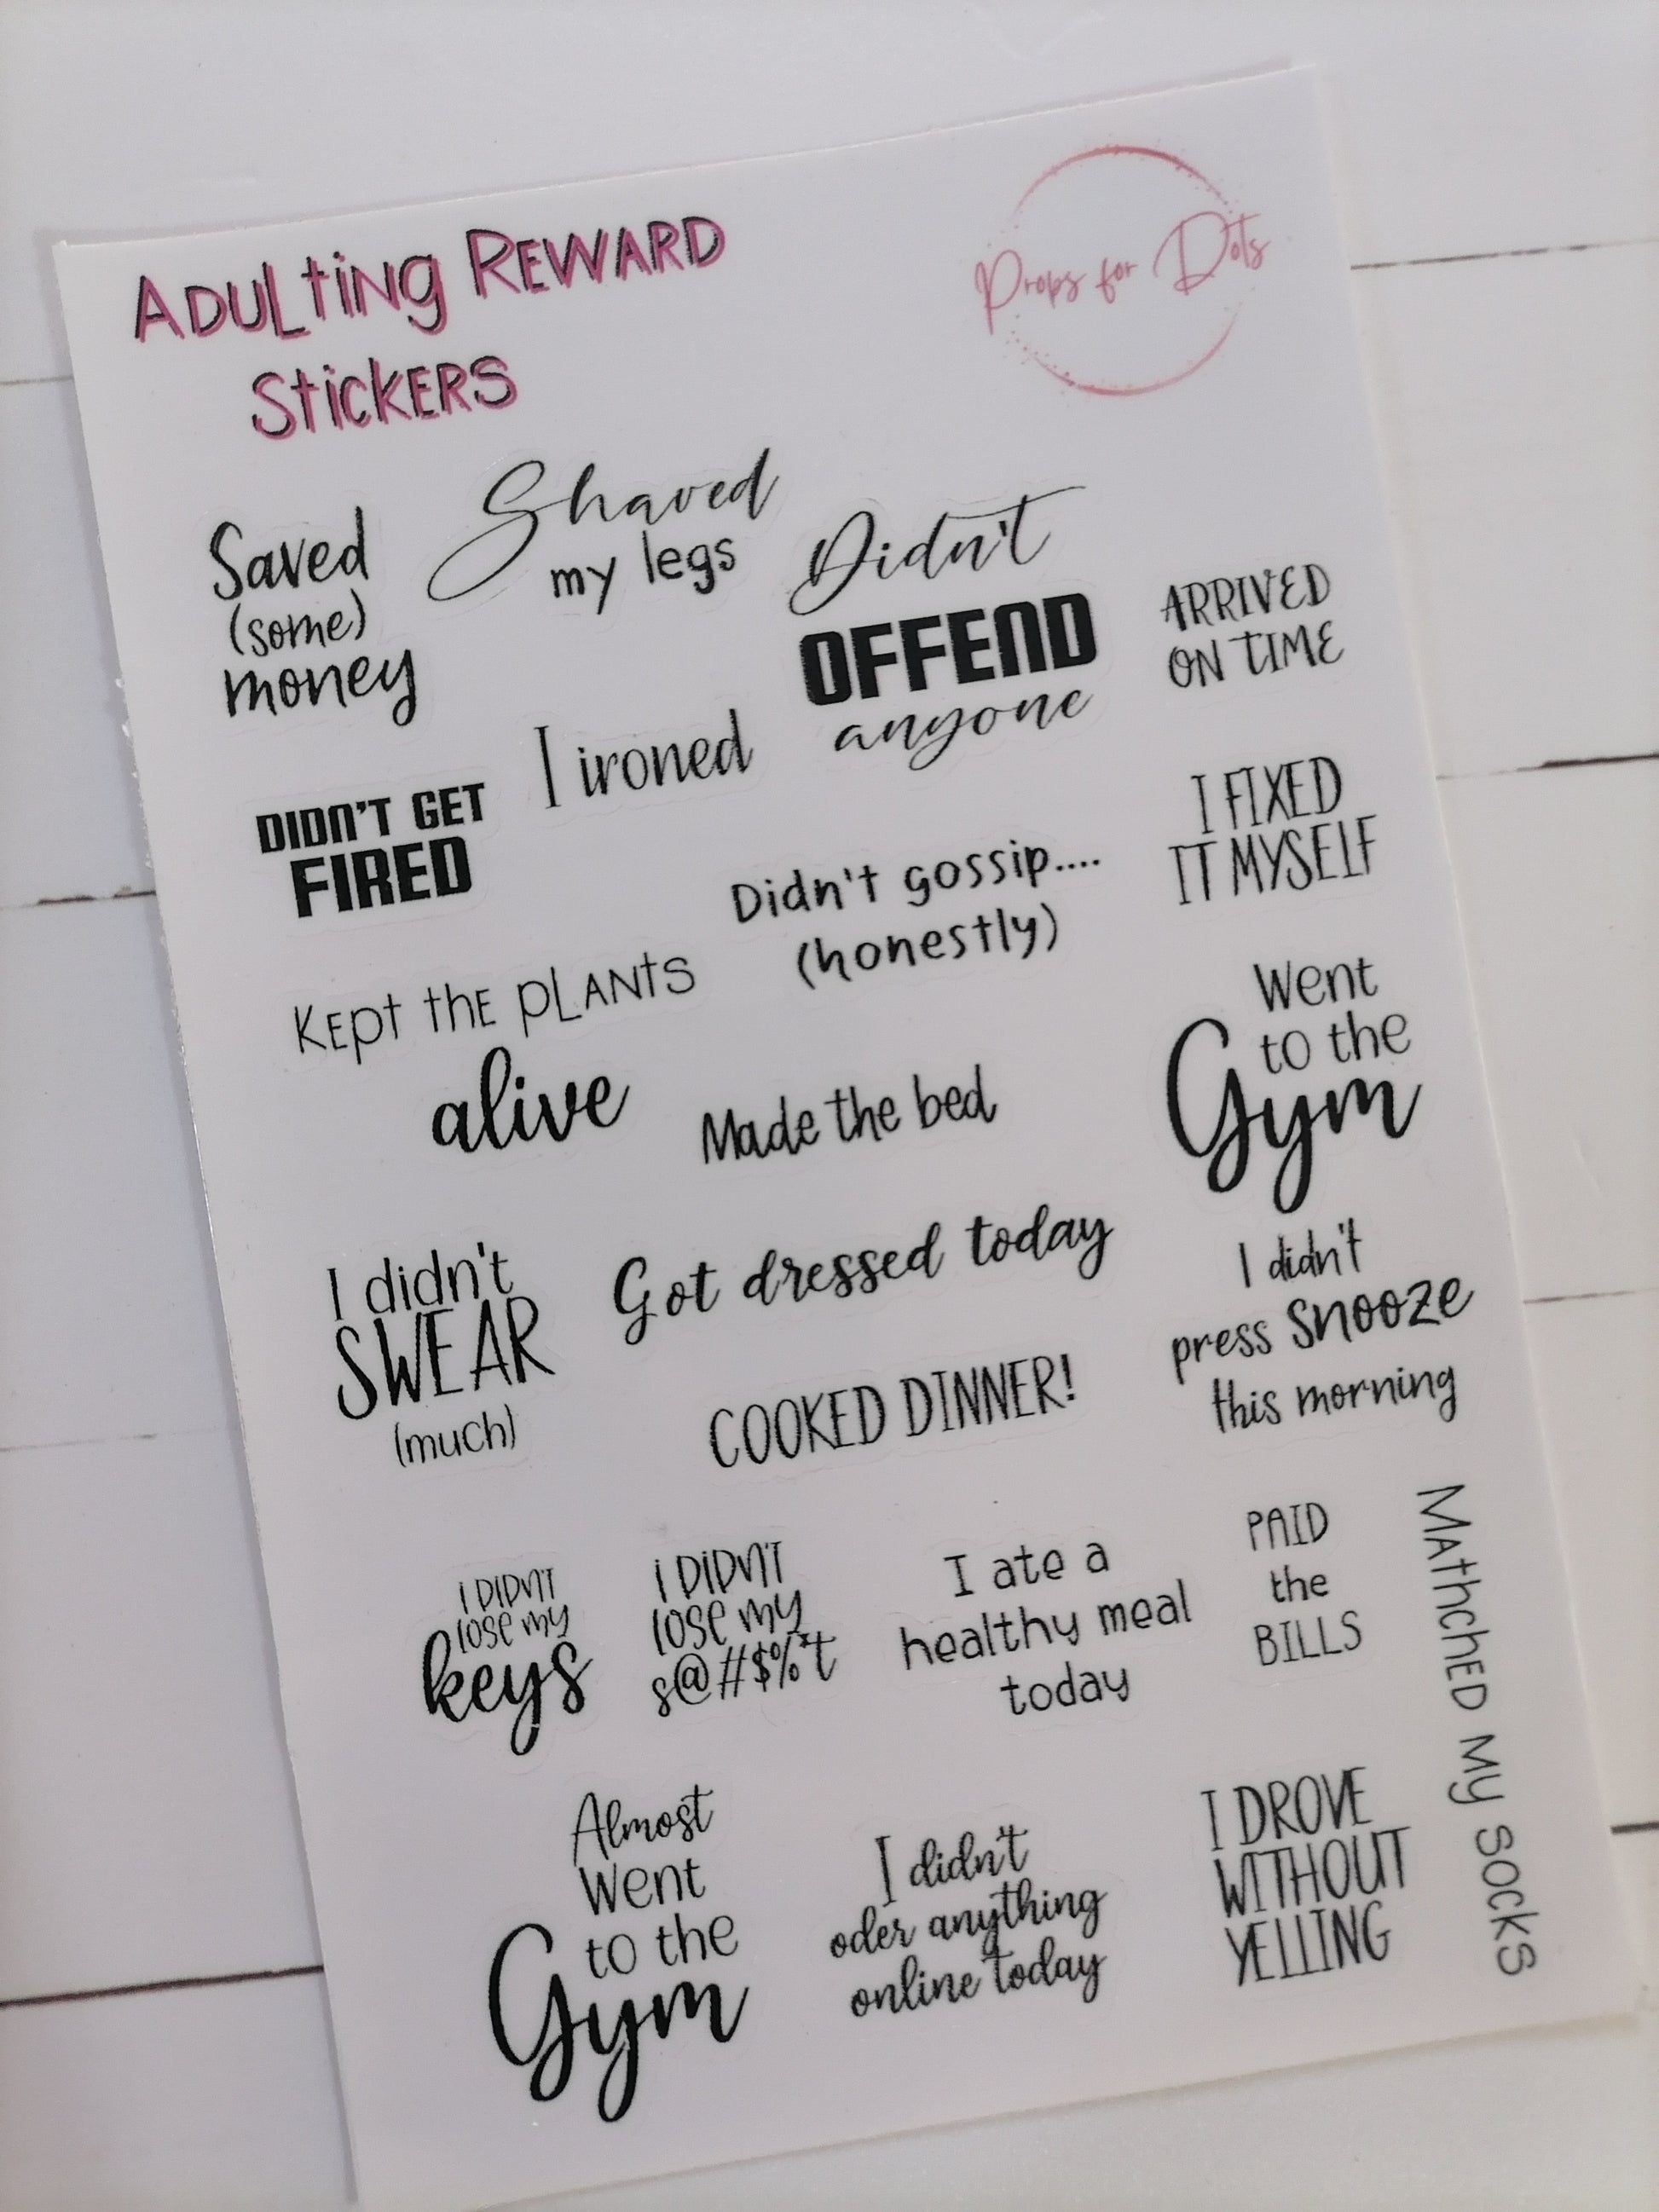 ADULting REWARD
StickERS
Props for Dots
Saved
(some)
money
Shaved
my legs
Didn't
OFFEND
anyone
ARRIVED
ON TIME
DIDN'T GET
FIRED
I ironed
I FIXED
IT MYSELF
Didn't gossip....
(honestly)
KEpt thE pLANts
alive
Made the bed
Went
to the
Gym
I didn't
SWEAR
(much)
Got dressed today
I didn't
press snooze
this morning
COOKED DINNER!
I DIDN'T
lose my
keys
I DIDN'T
lose my
s@#$%*t
I ate a
healthy meal
today
PAID
the
BILLS
MAthchED My SOCKS
Almost
Went
to the
Gym
I didn't
oder anything
online today
I DROVE
WITHOUT
YELLING